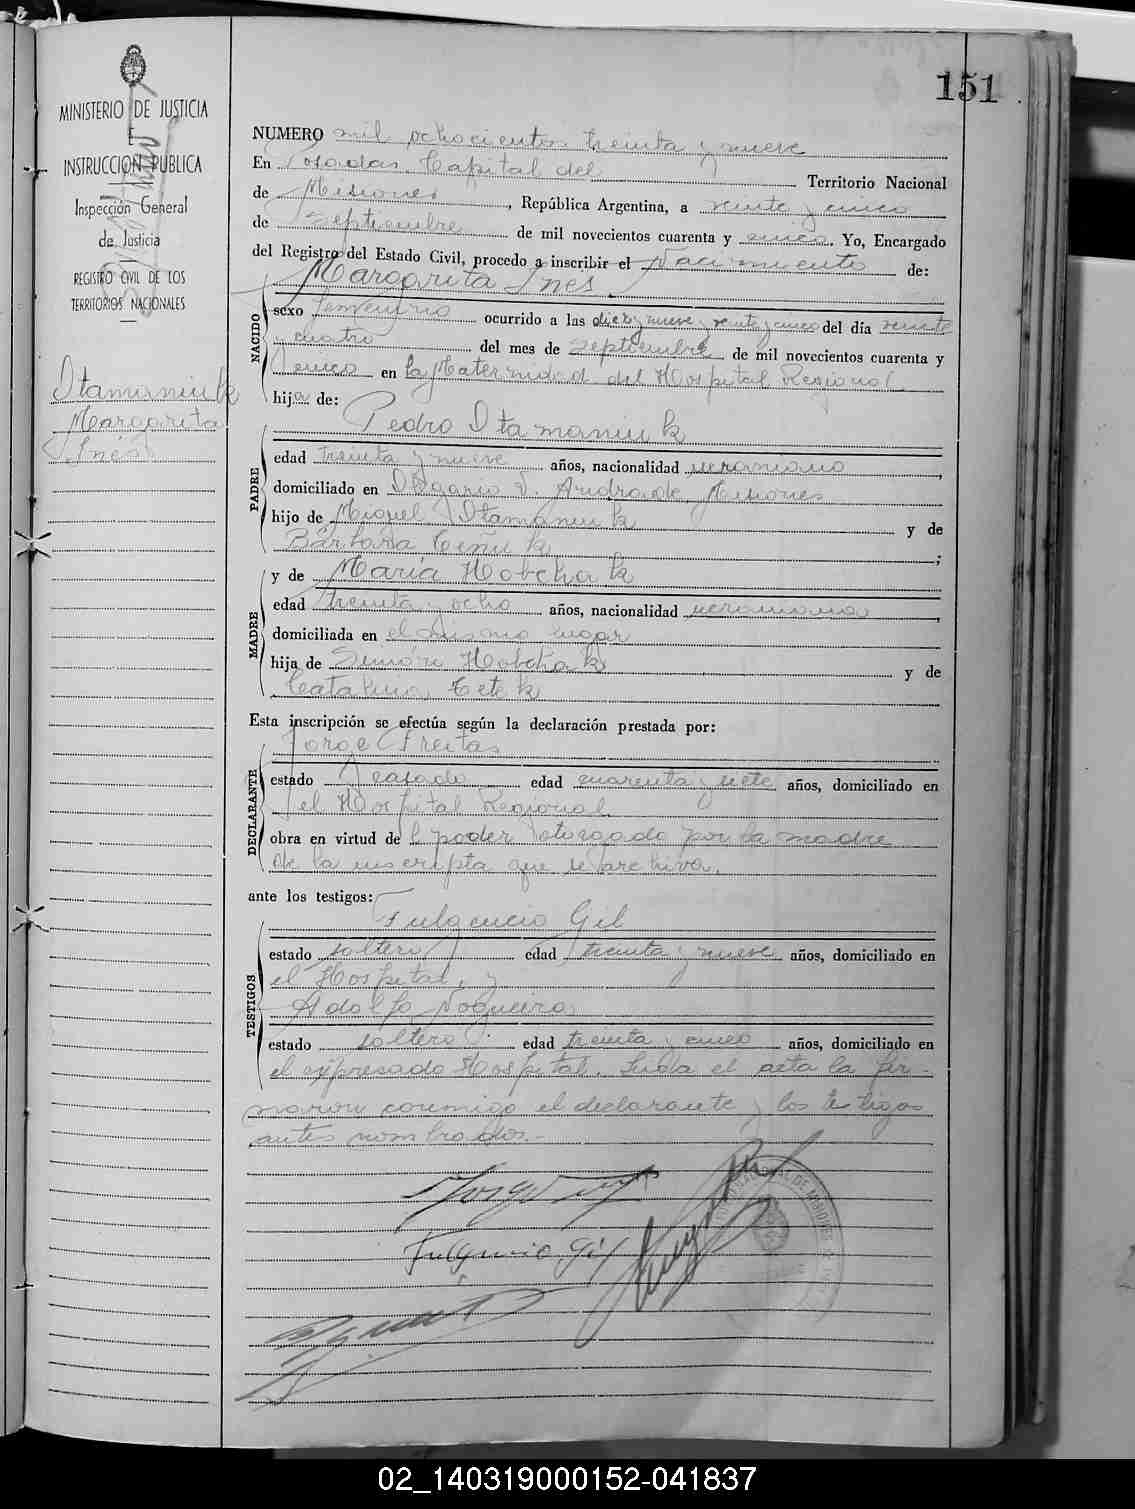 151
MINISTERIO DE JUSTICIA
E
INSTRUCCION PUBLICA
Inspección General
de Justicia
REGISTRO CIVIL DE LOS
TERRITORIOS NACIONALES
Itamaniuk
Margarita
Inés
NUMERO mil ochocientos treinta y nueve
En Posadas, Capital del Territorio Nacional
de Misiones, República Argentina, a veinte y cinco
de septiembre de mil novecientos cuarenta y cinco. Yo, Encargado
del Registro del Estado Civil, procedo a inscribir el Nacimiento de:
Margarita Inés
NACIDO
sexo femenino ocurrido a las diez y nueve y veinte y cinco del día veinte
y cuatro del mes de septiembre de mil novecientos cuarenta y
cinco en la Maternidad del Hospital Regional
hija de:
Pedro Itamaniuk
PADRE
edad treinta y nueve años, nacionalidad ucraniano
domiciliado en Olegario V. Andrade, Misiones
hijo de Miguel Itamaniuk y de
Bárbara ;
MADRE
y de María Hobchak
edad treinta y ocho años, nacionalidad ucraniana,
domiciliada en el mismo lugar
hija de Simón Hobchak y de
Catalina Tetek
Esta inscripción se efectúa según la declaración prestada por:
Jorge Freitas
DECLARANTE
estado casado edad cuarenta y siete años, domiciliado en
el Hospital Regional
obra en virtud del poder otorgado por la madre
de la inscripta que se archiva.
ante los testigos:
Fulgencio Gil
TESTIGOS
estado soltero edad treinta y nueve años, domiciliado en
el Hospital, y
Adolfo Nogueira
estado soltero edad treinta y cinco años, domiciliado en
el expresado Hospital. Leída el acta la fir-
maron conmigo el declarante y los testigos
antes nombrados.-
Fulgencio Gil
02_140319000152-041837